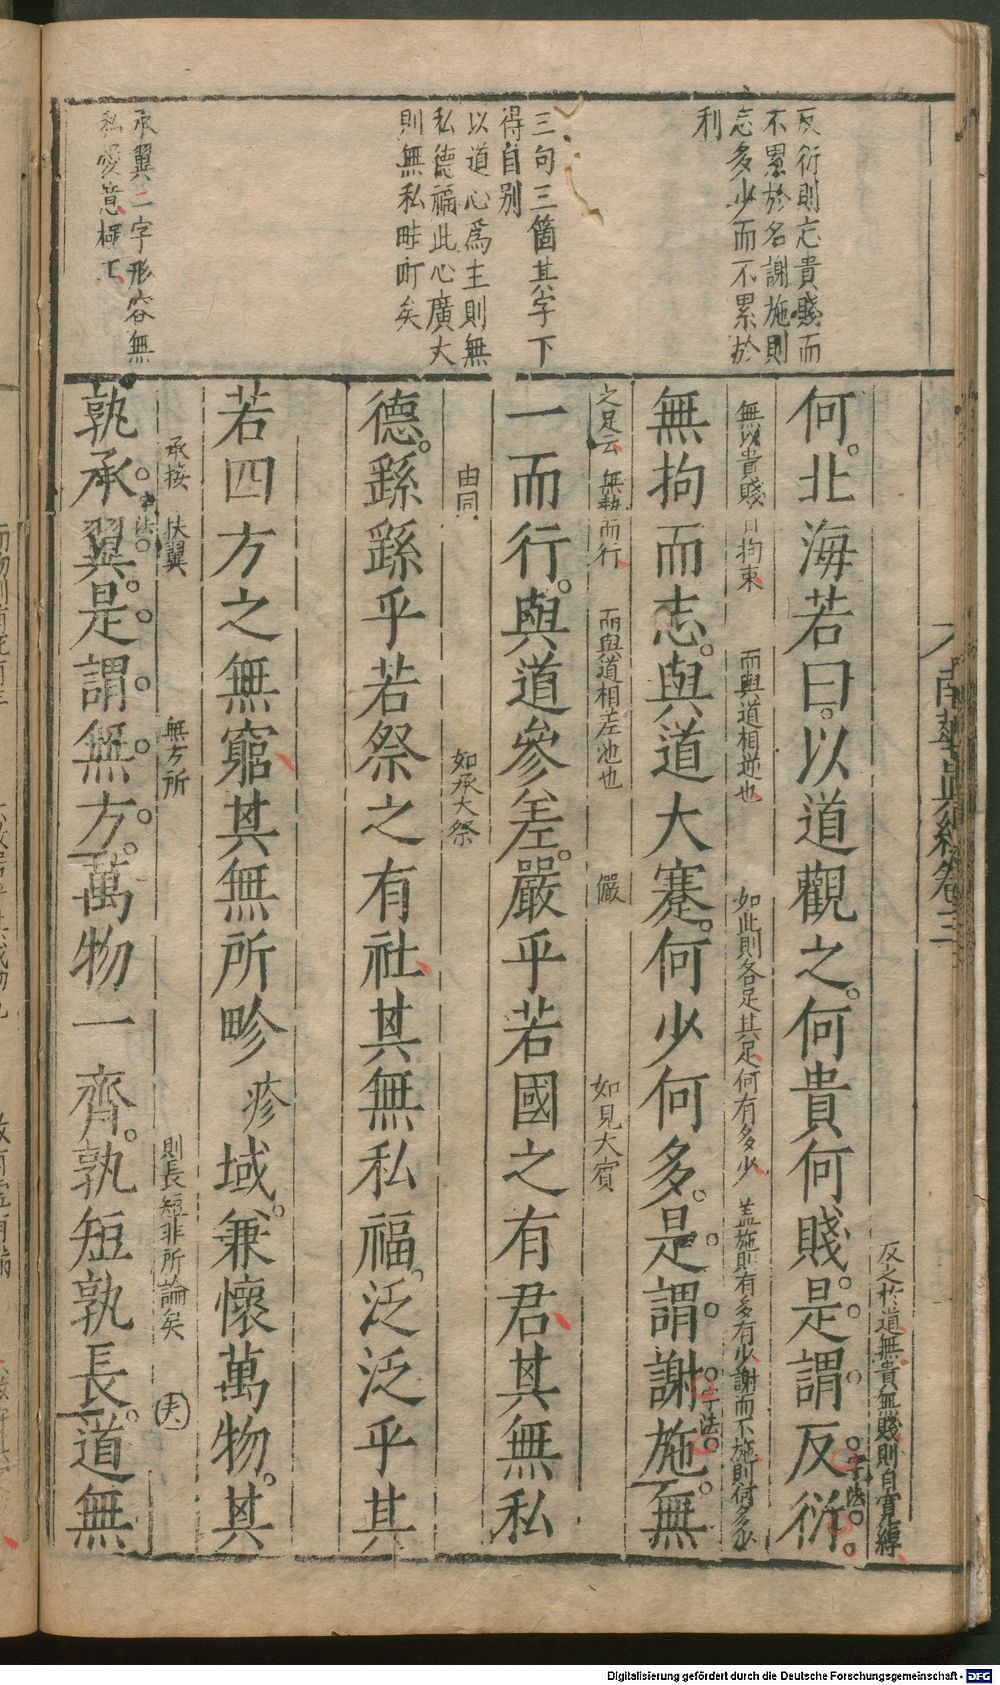 反衍則忘貴賤而
不累於名謝施則
忘多少而不累於
利
三句三箇其字下
得自別
以道心為主則無
私德福此心廣大
則無私畦町矣
承翼二字形容無
私愛意極工
南華真經卷三
反之於道無貴無賤則自寬綽
何北海若曰以道觀之何貴何賤是謂反衍
字法
無以貴賤自拘束 而與道相逆也 如此則各足其足何有多少 蓋施則有多有少謝而不施則何多少
無拘而志與道大蹇何少何多是謂謝施無
字法
之足云 無執而行 而與道相差池也 儼 如見大賓
一而行與道參差嚴乎若國之有君其無私
由同 如承大祭
德繇繇乎若祭之有社其無私福泛泛乎其
若四方之無窮其無所畛 疹 域兼懷萬物其
承接 扶翼 無方所 則長短非所論矣
孰承翼是謂無方萬物一齊孰短孰長道無
字法
Digitalisierung gefördert durch die Deutsche Forschungsgemeinschaft - DFG